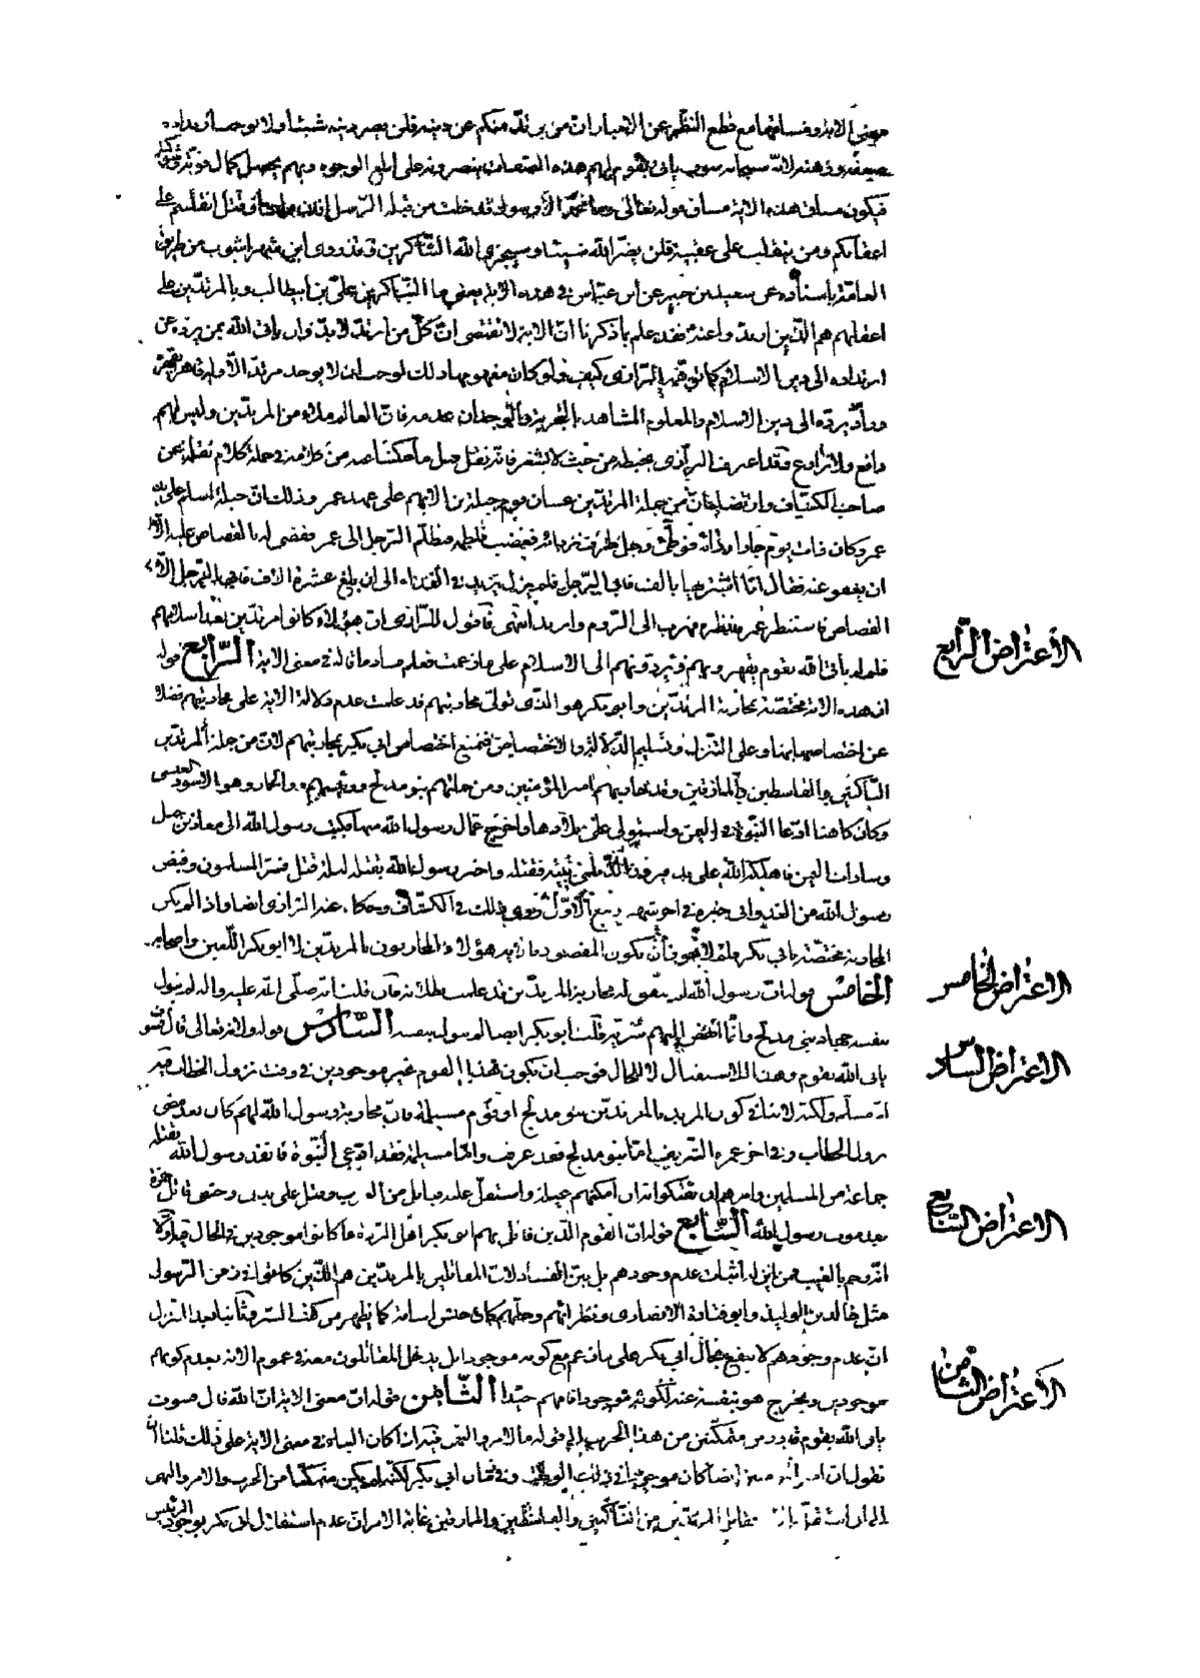 معنى الاية وفسادها مع قطع النظر عن الاعبارات من يرتد منكم عن دينه فلن يضر دينه شيئا ولا يوجب
لان الله سبحانه سوف ياتى بقوم لهم هذه الصفات ينصرونه على ابلغ الوجوه وبهم يحصل كمال
فيكون مساق هذه الاية مساق قوله تعالى وما محمد الا رسول قد خلت من قبله الرسل افان مات او قتل انقلبتم على
اعقابكم ومن ينقلب على عقبيه فلن يضر الله شيئا وسيجزى الله الشاكرين وقد روى ابن شهر اشوب من طريق
العامة باسناده عن سعيد بن جبير عن ابن عباس فى هذه الاية يعنى بالشاكرين على بن ابيطالب وبالمرتدين على
اعقابهم هم الذين ارتدوا عنه فقد علم بما ذكرنا ان الاية لا تقتضى ان كل من ارتد لابد وان ياتى الله بمن يرده عن
ارتداده الى دين الاسلام كما توهمه الرازى كيف ولو كان مفهومها ذلك لوجب ان لا يوجد مرتد الا وله قاهر يقهره
وراد يرده الى دين الاسلام والمعلوم المشاهد بالتجربة والوجدان عدمه فان العالم ملاء من المرتدين وليس لهم
دافع ولا رادع وقد اعترف الرازى بخبطه من حيث لا يشعر فانه نقل قبل ما حكينا عنه من كلامه فى جملة كلام نقله عن
صاحب الكشاف وارتضاه ان من جملة المرتدين غسان قوم جبلة بن الايهم على عهد عمر وذلك ان جبلة اسلم على يد
عمر وكان ذات يوم جارا رداءه فوطئ رجل طرف ردائه فغضب فلطمه فتظلم الرجل الى عمر فقضى له بالقصاص عليه الا
ان يعفو عنه فقال انا اشتريها بالف فابى الرجل فلم يزل يزيد فى الفداء الى ان بلغ عشرة الاف فابى الرجل الا
القصاص فاستنظر عمر فانظره فهرب الى الروم وارتد انتهى فاقول للرازى ان هؤلاء كانوا مرتدين بعد اسلامهم
فلم لم يأت الله بقوم يقهرونهم ويردونهم الى الاسلام على ما زعمت فعلم فساد ما قاله فى معنى الاية الرابع قوله
ان هذه الاية مختصة بمحاربة المرتدين وابو بكر هو الذى تولى محاربتهم قد علمت عدم دلالة الاية على محاربتهم فضلا
عن اختصاصها بها وعلى التنزل وتسليم الدلالة والاختصاص فنمنع اختصاص ابى بكر بمحاربتهم لان من جملة المرتدين
الناكثين والقاسطين والمارقين وقد حاربهم امير المؤمنين ومن جملتهم بنو مدلج ورئيسهم ذو الحمار وهو الاسود العنسى
وكان كاهنا ادعا النبوة فى اليمن واستولى على بلادها واخرج عمال رسول الله منها فكتب رسول الله الى معاذ بن جبل
وسادات اليمن فاهلكه الله على يد فيروز الديلمى بيته فقتله واخبر رسول الله بقتله ليلة قتل فسر المسلمون وقبض
رسول الله من الغد واتى خبره فى اخر شهر ربيع الاول روى ذلك فى الكشاف وحكاه عنه الرازى ايضا واذا لم يكن
المحاربة مختصة بابى بكر فلم لا يجوز أن يكون المقصود بالاية هؤلاء المحاربون بالمرتدين لا ابو بكر اللعين واصحابه
الخامس قوله ان رسول الله لم يتفق له محاربة المرتدين قد علمت بطلانه فان قلت انه صلى الله عليه واله لم يتول
بنفسه جهاد بنى مدلج وانما انهض اليهم سرية قلت ابو بكر ايضا لم يتول بنفسه السادس قوله ولانه تعالى قال فسوف
ياتى الله بقوم وهذا للاستقبال لا للحال فوجب ان يكون هذا القوم غير موجودين فى وقت نزول الخطاب فيه
انه مسلم ولكنه لا ينافى كون المريد بالمرتدين بنو مدلج او قوم مسيلمة فان محاربة رسول الله لهم كان بعد مضى
نزول الخطاب وفى اخر عمره الشريف اما بنو مدلج فقد عرفت واما مسيلمة فقد ادعى النبوة فانفذ رسول الله بقتله
جماعة من المسلمين وامرهم ان يفتكوا به ان امكنهم غيلة واستعان عليه قبايل من العرب وقتل على يدى وحشى قاتل حمزة
بعد موت رسول الله السابع قوله ان القوم الذين قاتل بهم ابو بكر اهل الردة ما كانوا موجودين فى الحال فيه اولا
انه رجم بالغيب من اين له اثبات عدم وجودهم بل بين الفساد لان المقاتلين بالمرتدين هم الذين كانوا فى زمن الرسول
مثل خالد بن الوليد وابو قتادة الانصارى ونظرائهم وجلهم كان فى جيش اسامة كما يظهر من كتب السير وثانيا بعد التنزل
ان عدم وجودهم لا ينفع بحال ابى بكر على ما زعم مع كونه موجودا بل يدخل المقاتلون معه فى عموم الاية بعدم كونهم
موجودين ويخرج هو بنفسه عنه لكونه موجودا فافهم جيدا الثامن قوله ان معنى الاية ان الله قال سوف
ياتى الله بقوم قادرين متمكنين من هذا الحرب الى قوله بالامر والنهى فيه ان كان البناء فى معنى الاية على ذلك قلنا ان
نقول ان امير المؤمنين ايضا كان موجودا فى ذلك الوقت وفى زمان ابى بكر لكنه لم يكن متمكنا من الحرب والامر والنهى
مقاتل المرتدين من الناكثين والقاسطين والمارقين غاية الامر ان عدم استقلال ابى بكر بوجود الرئيس
الاعتراض الرابع
الاعتراض الخامس
الاعتراض السادس
الاعتراض السابع
الاعتراض الثامن